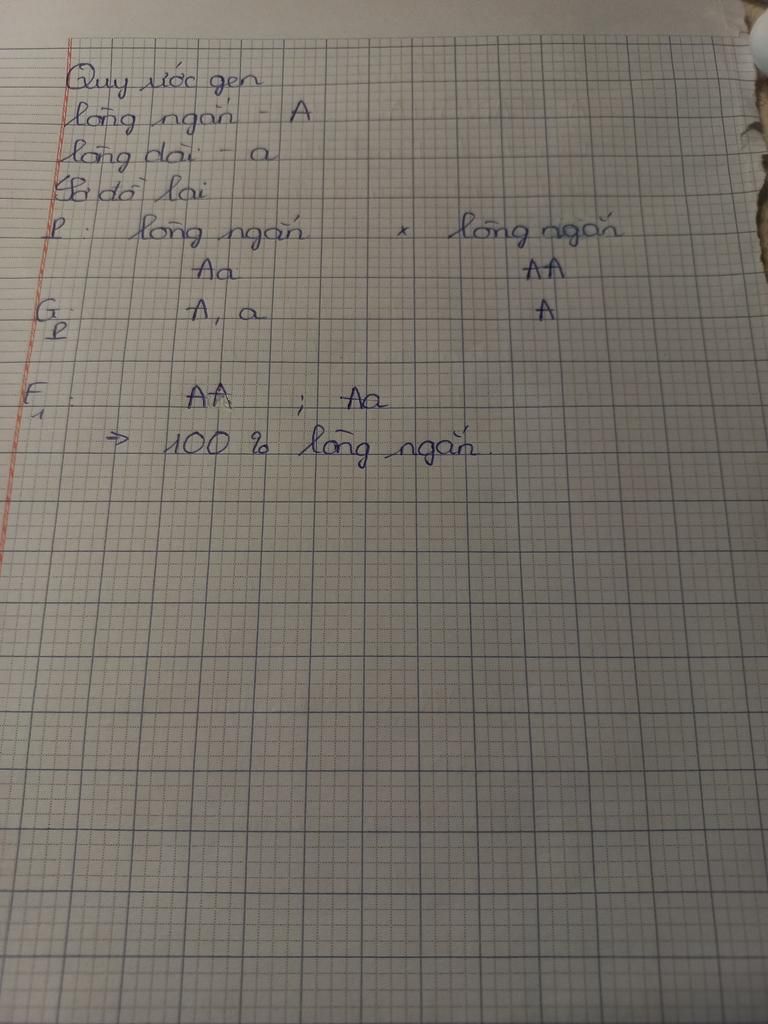 Quy ước gen
lông ngắn - A
lông dài - a
Sơ đồ lai
P: lông ngắn × lông ngắn
Aa AA
G: A, a A
P
F : AA ; Aa
1
⇒ 100 % lông ngắn